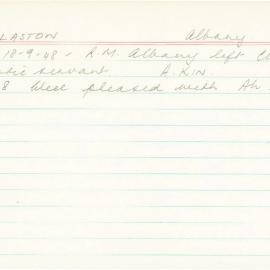 LASTON Albany
18-9-48 - R.M. Albany left
servant A. KIN.
8 Well pleased with Ah